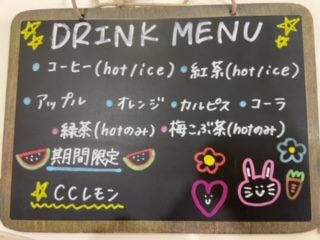 DRINK MENU
コーヒー(hot/ice) 紅茶(hot/ice)
アップル オレンジ カルピス コーラ
緑茶(hotのみ) 梅こぶ茶(hotのみ)
期間限定
CCレモン